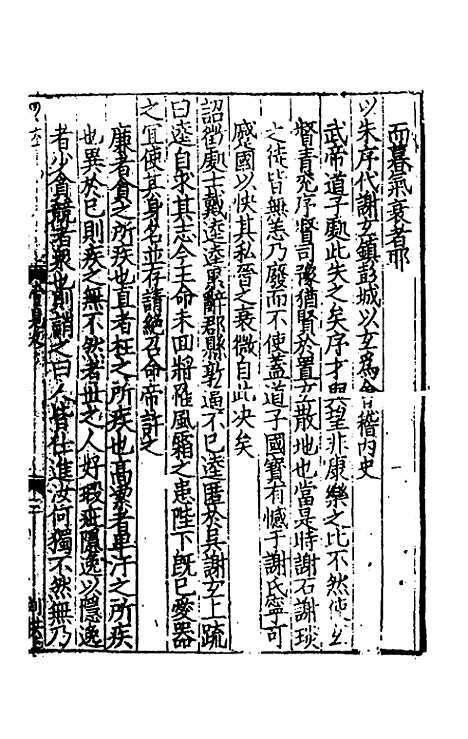 而暮氣衰者耶
以朱序代謝玄鎮彭城以玄爲會稽内史
武帝道子於此失之矣序才望非康樂之比不然使玄
督青兖序督司豫猶賢於置玄散地也當是時謝石謝琰
之徒皆無恙乃廢而不使蓋道子國寳有憾于謝氏寧可
蹙國以快其私晉之衰微自此决矣
詔徵處士戴逵逵累辭郡縣敦逼不已逵匿於吴謝玄上疏
曰逵自求其志今王命未回將罹風霜之患陛下旣已愛器
之宜使其身名並存請絶召命帝許之
廉者貪之所疾也直者枉之所疾也髙潔者卑汙之所疾
也異於已則疾之無不然者世之人好瑕疵隱逸以隱逸
者少貪競者衆也則誚之曰人皆仕進汝何獨不然無乃